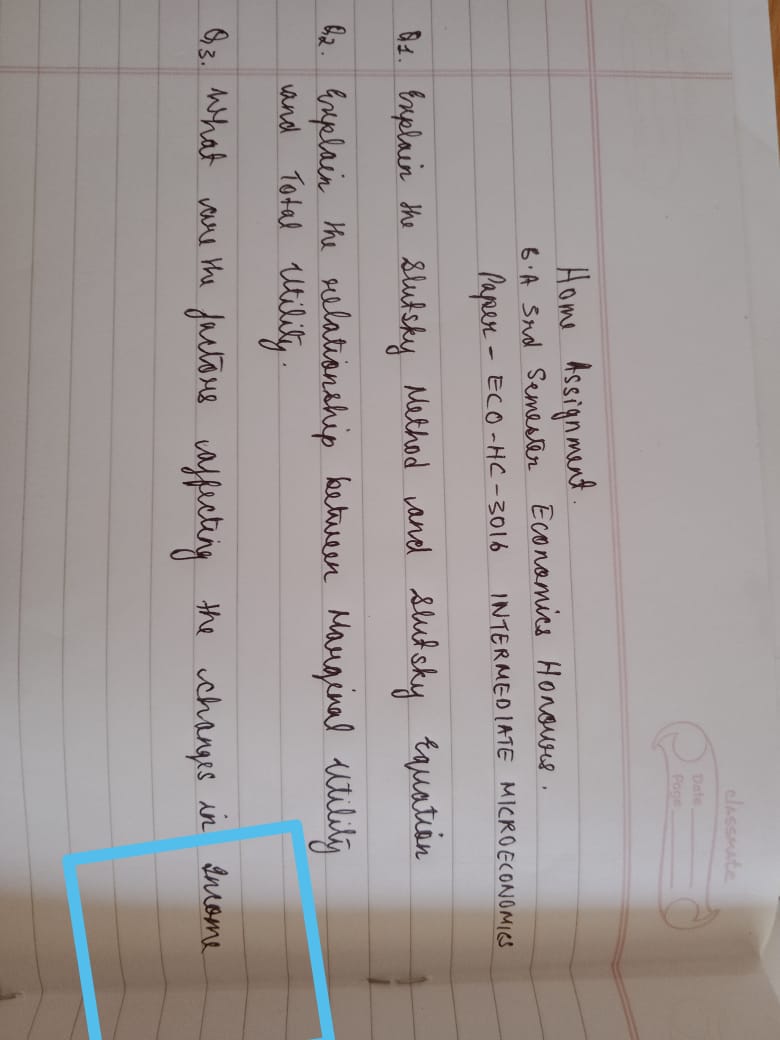 classmate
Date
Page
Home Assignment.
B.A 3rd Semester Economics Honours.
Paper - ECO-HC-3016 INTERMEDIATE MICROECONOMICS
Q1. Explain the Slutsky Method and Slutsky Equation
Q2. Explain the relationship between Marginal Utility
and Total Utility.
Q3. What are the factors affecting the changes in Income